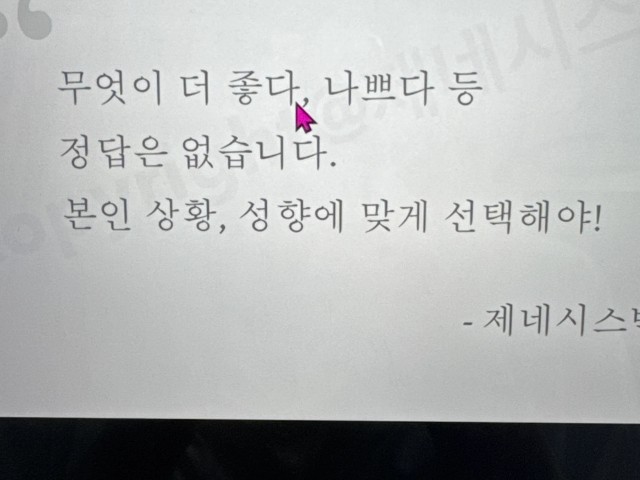 무엇이 더 좋다, 나쁘다 등
정답은 없습니다.
본인 상황, 성향에 맞게 선택해야!
- 제네시스